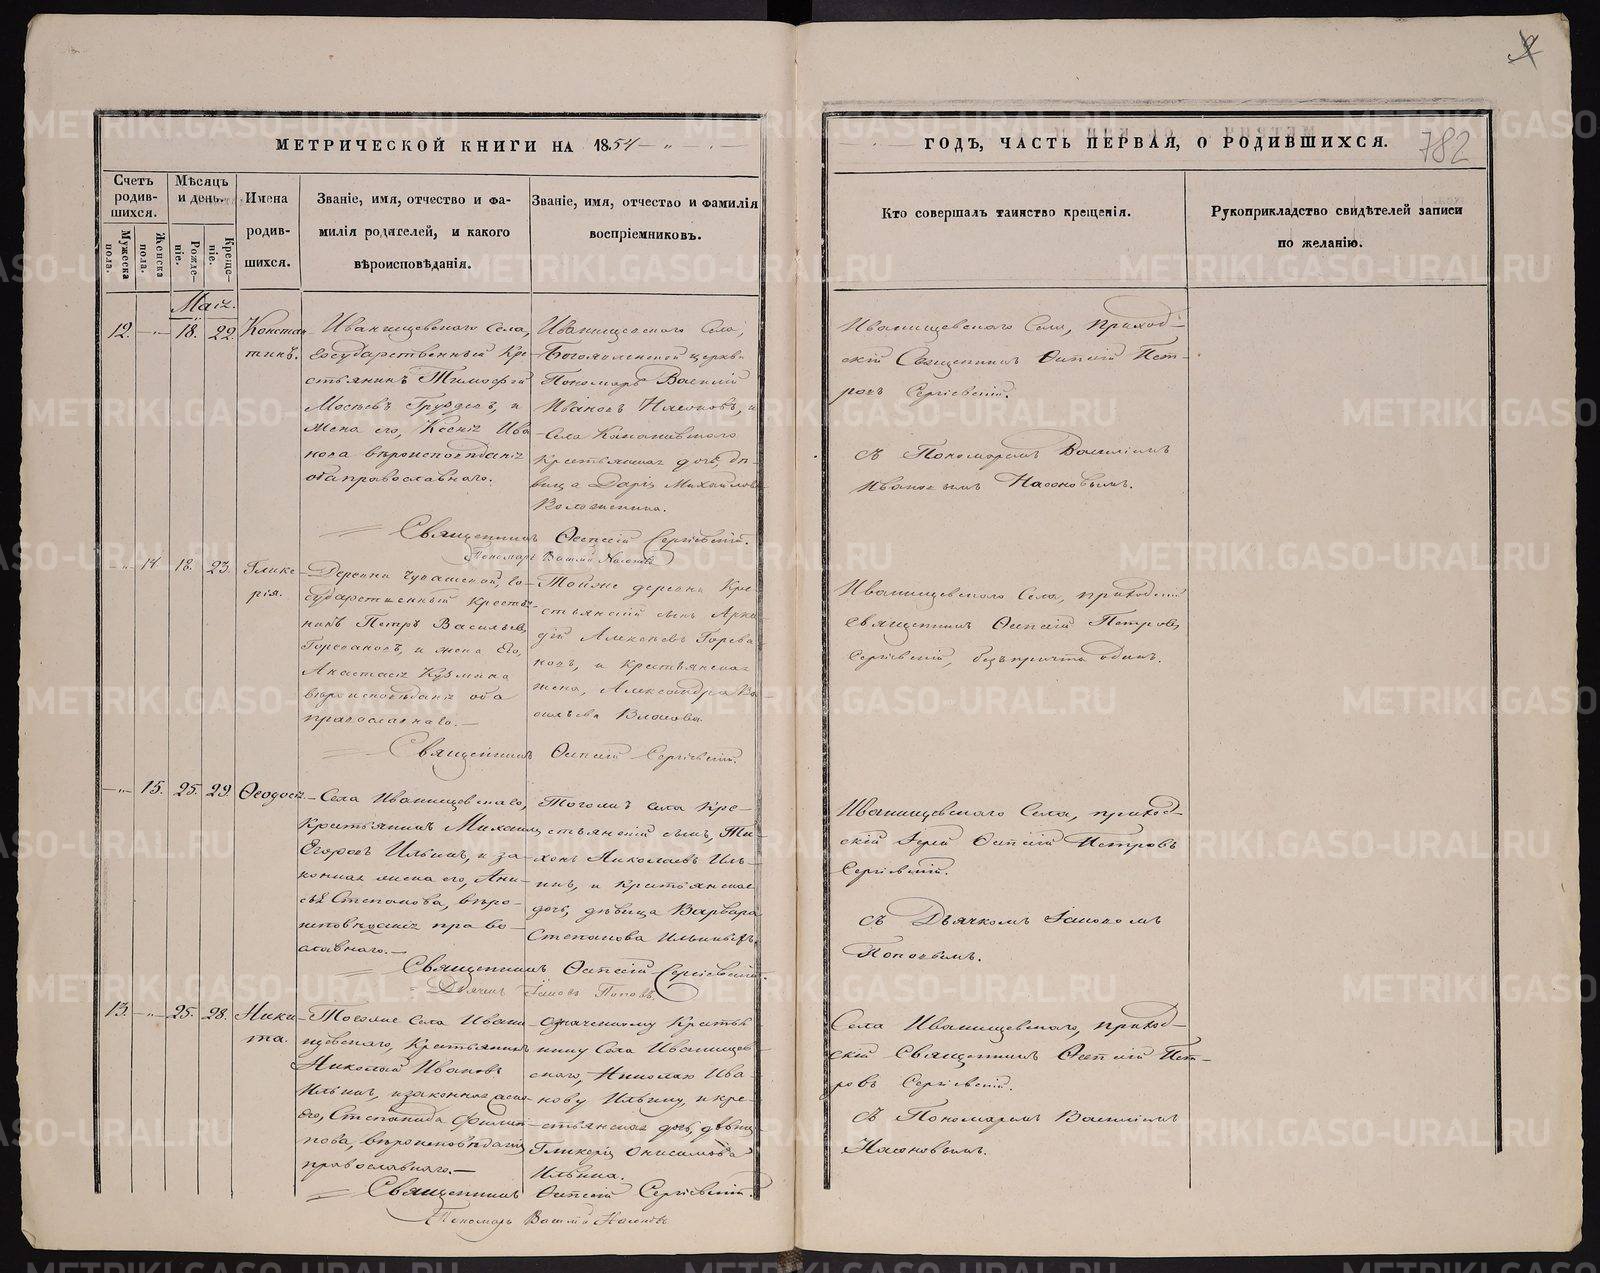 782
МЕТРИЧЕСКОЙ КНИГИ НА 1854
ГОДЪ, ЧАСТЬ ПЕРВАЯ, О РОДИВШИХСЯ.
Счетъ родив-шихся.
Мужеска пола.
Женска пола.
Мѣсяцъ и день.
Рожде-ніе.
Креще-ніе.
Имена
родив-
шихся.
Званіе, имя, отчество и фа-
милія родителей, и какого
вѣроисповѣданія.
Званіе, имя, отчество и фамилія
воспріемниковъ.
Кто совершалъ таинство крещенія.
Рукоприкладство свидѣтелей записи
по желанію.
12. 18. 22. Констан
тинъ.
Иванищевскаго Села,
Государственный Кре
стьянинъ Тимофей
Груздевъ, и
Жена его, Ксенія Ива
нова вѣроисповѣданія
оба православнаго.
Иванищевскаго Села,
Богоявленской церкви
Пономарь Василій
Ивановъ Насоновъ, и
Села
Крестьянская дочь, дѣ
вица Дарья Михайлова
Священникъ Сергіевскій.
Пономарь Василій Насоновъ
Иванищевскаго Села, приход-
скій Священникъ Пет-
ровъ Сергіевскій.
съ Пономаремъ Василіемъ
Ивановымъ Насоновымъ.
14 18. 23. Глике
рія.
Деревни Го
сударственный Крестья
нинъ Петръ Васильевъ
Гореванов, и жена Его,
Анастасія Кузмина
вѣроисповѣданія оба
православнаго.
Тойже деревни Кре
стьянскій сынъ Арка
дій Алексѣевъ Горева
новъ, и крестьянская
жена, Александра Ва
сильева Власова
Священникъ Сергіевскій.
Иванищевскаго Села, приходскій
Священникъ Петровъ
Сергіевскій, безъ причта одинъ.
15. 25. 29. Ѳеодосія.
Села Иванищевскаго,
Крестьянинъ Михаилъ
Егоровъ Ильинъ, и за-
конная жена его, Ани-
сья Степанова, вѣро-
исповѣданія право-
славнаго.
Тогожъ села Кре-
стьянскій сынъ, Ти-
хонъ Николаевъ Иль-
инъ, и крестьянская
дочь, дѣвица Варвара
Степанова Ильиныхъ.
Священникъ Сергіевскій.
Дьячекъ Іаковъ Поповъ.
Иванищевскаго Села, приход-
скій Іерей Петровъ
Сергіевскій.
съ Дьячкомъ Іаковомъ
Поповымъ.
13. 25. 28. Ники
та.
Тогоже Села Ивани
щевскаго, Крестьянинъ
Николай Ивановъ
Ильинъ, и законная жена
его, Степанида Филип
пова, вѣроисповѣданія
православнаго.
Означенному Крестья
нину Села Иванищев-
скаго, Николаю Ива-
нову Ильину, и кре-
стьянская дочь, дѣвица
Гликерія Онисимова
Ильина.
Священникъ Сергіевскій.
Пономарь Василій Насоновъ
Села Иванищевскаго, приход-
скій Священникъ Пет-
ровъ Сергіевскій.
съ Пономаремъ Василіемъ
Насоновымъ.
METRIKI.GASO-URAL.RU